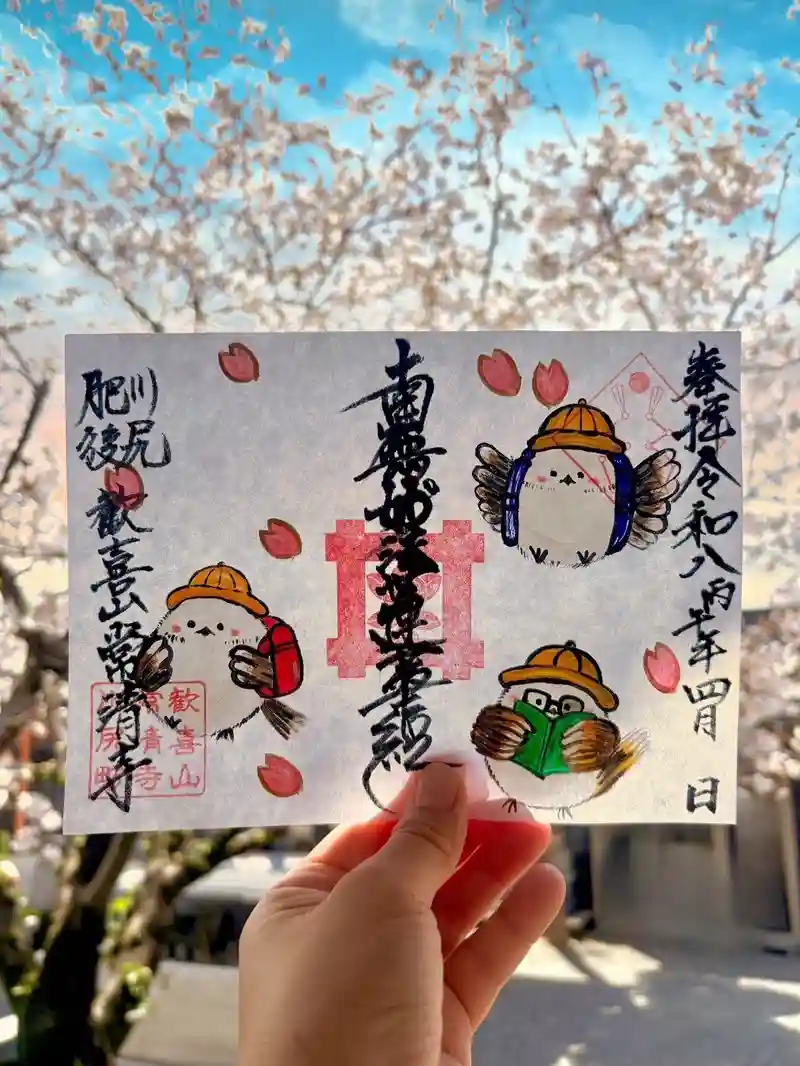 奉拝令和八丙午年四月 日
南無妙法蓮華経
川尻
肥後
歓喜山常清寺
歓喜山
常清寺
川尻町